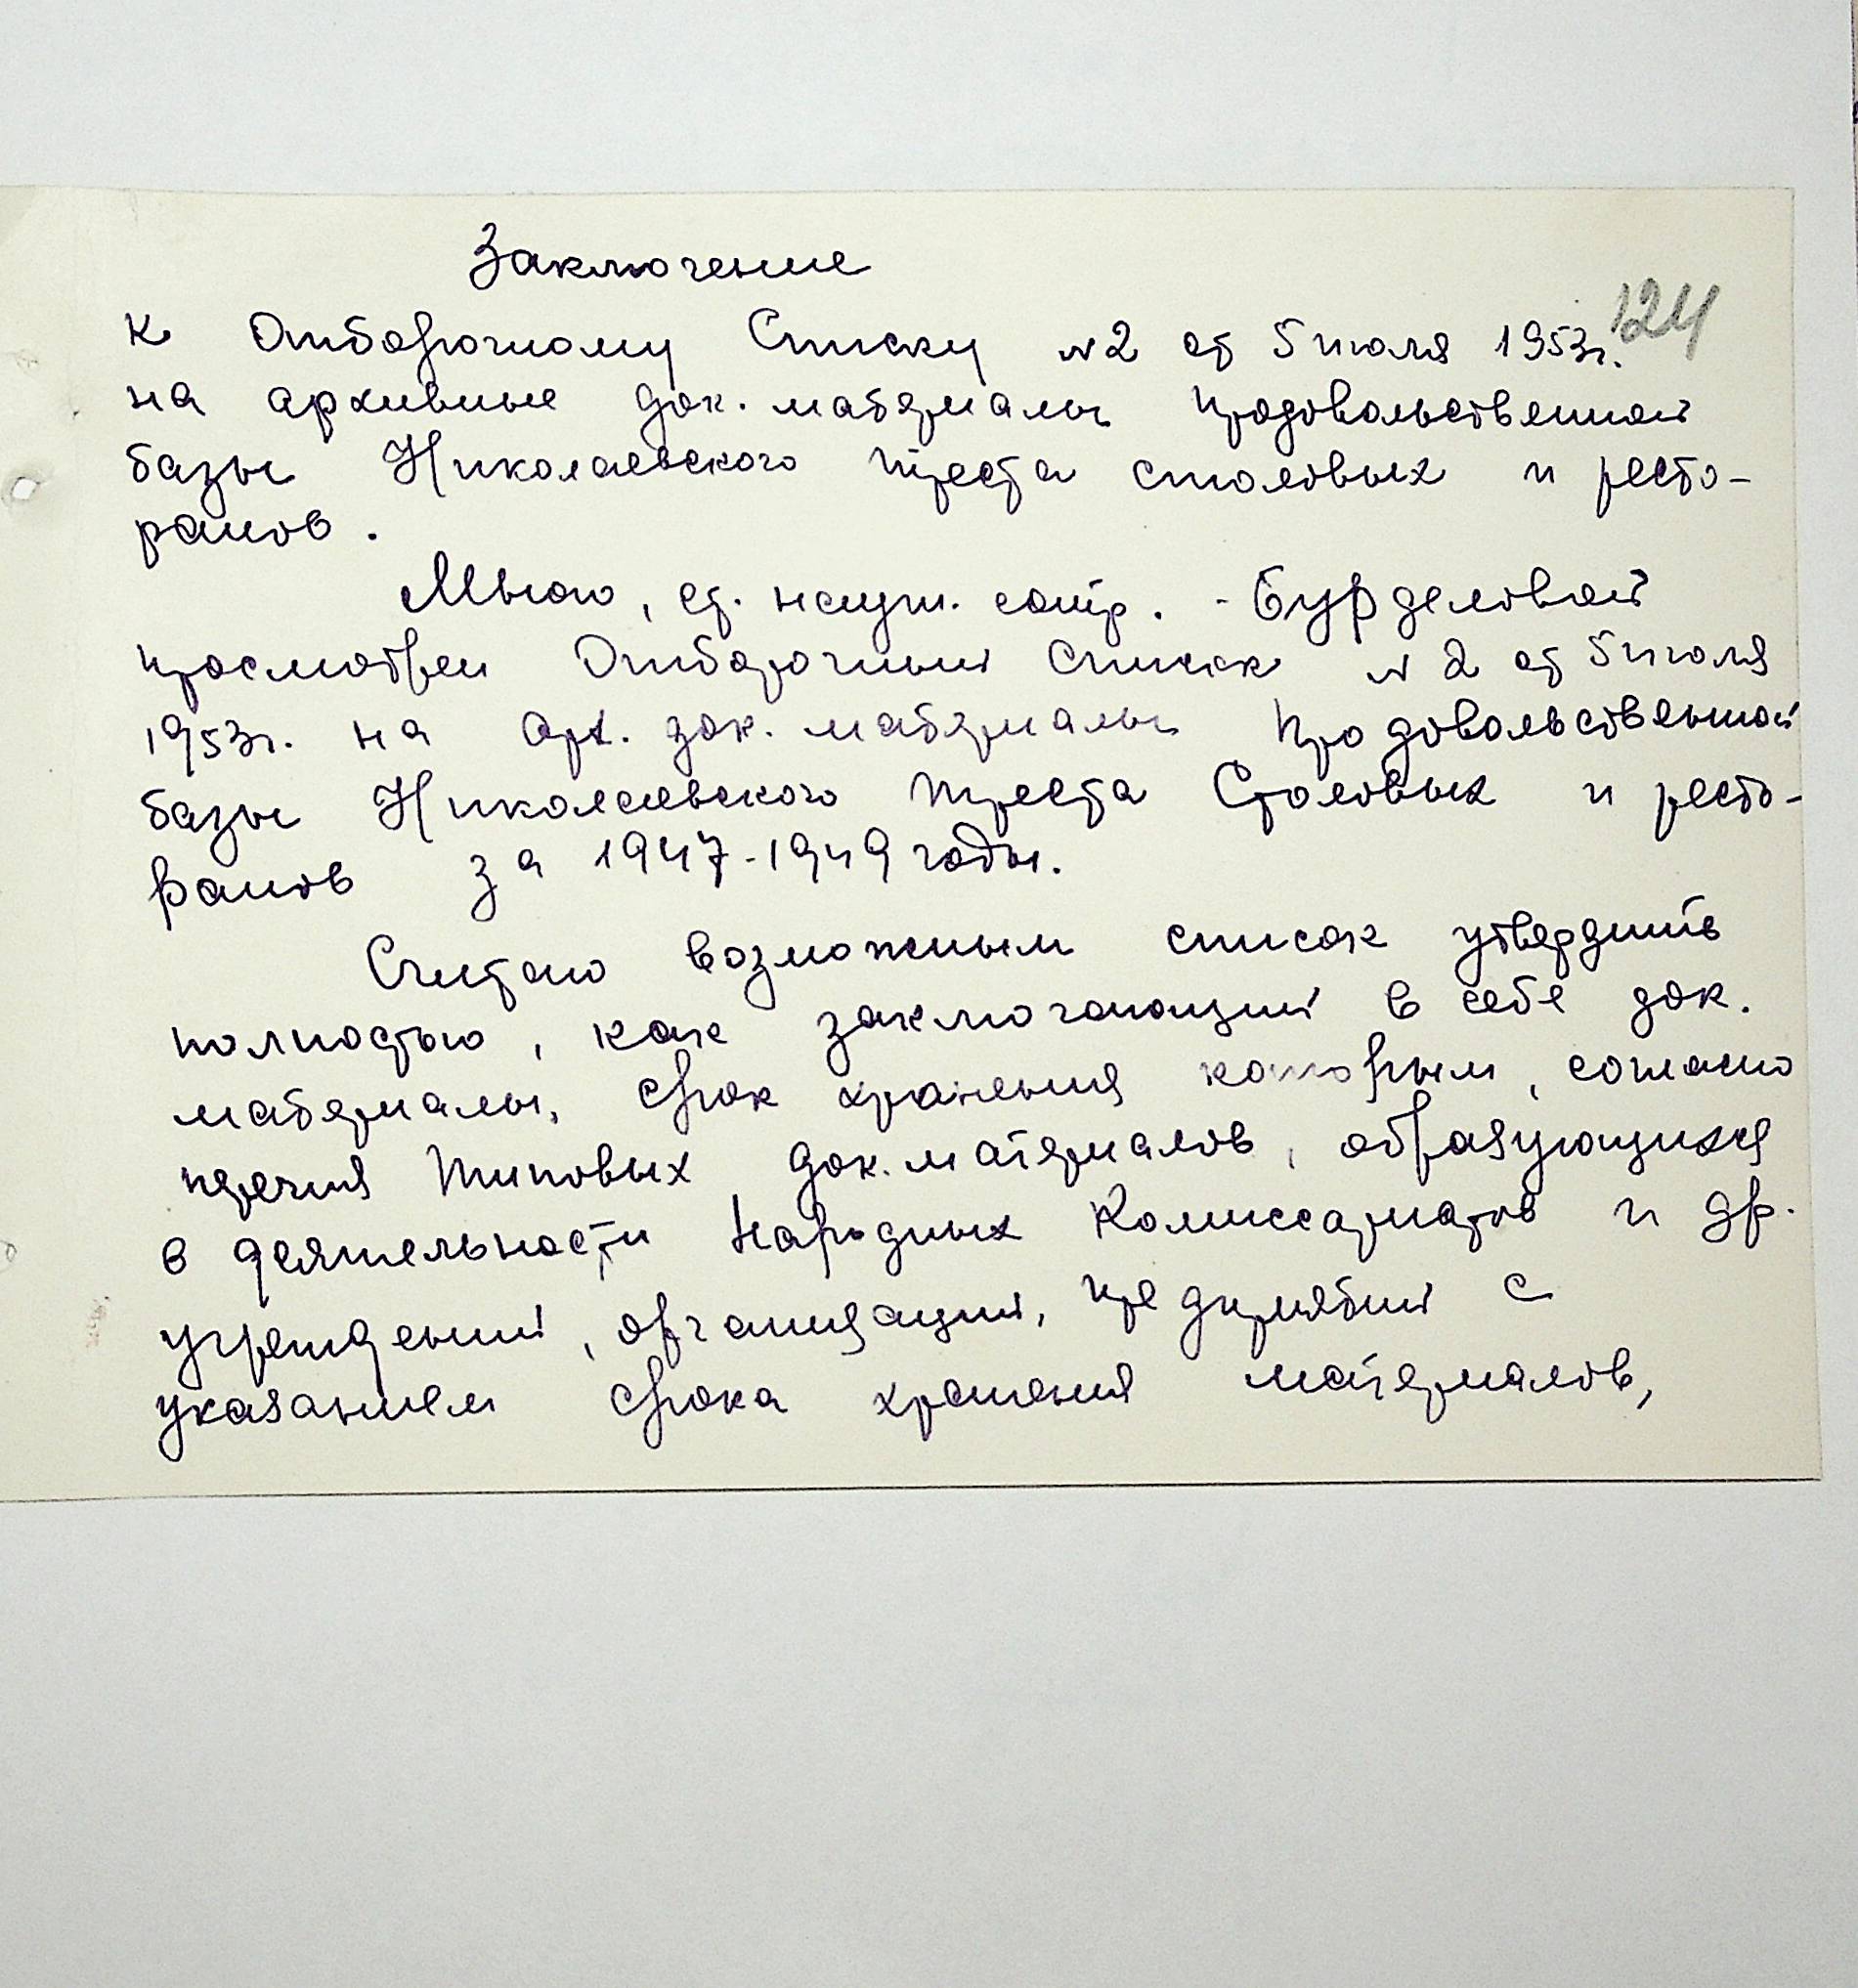 Заключение
124
к Отборочному Списку №2 от 5 июля 1953г.
на архивные док. материалы продовольственной
базы Николаевского треста столовых и ресто-
ранов.
Мною, ст. научн. сотр. - Бурделовой
просмотрен Отборочный список №2 от 5 июля
1953г. на арх. док. материалы продовольственной
базы Николаевского треста Столовых и ресто-
ранов за 1947-1949 годы.
Считаю возможным список утвердить
полностью, как заключающий в себе док.
материалы, срок хранения которым, согласно
перечня типовых док. материалов, образующихся
в деятельности Народных Комиссариатов и др.
учреждений, организаций, предприятий с
указанием срока хранения материалов,